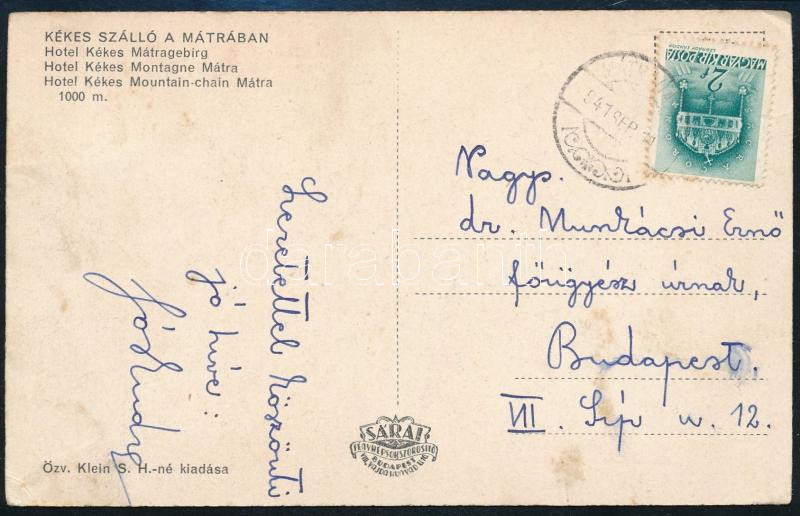 KÉKES SZÁLLÓ A MÁTRÁBAN
Hotel Kékes Mátragebirg
Hotel Kékes Montagne Mátra
Hotel Kékes Mountain-chain Mátra
1000 m.
MAGYAR KIR. POSTA
2f
941 SEP
Nagys.
dr. Munkácsi Ernő
főügyész úrnak,
Budapest.
VII. Síp u. 12.
Szeretettel köszönti
jó híve:
SÁRAI
FÉNYKÉPSOKSZOROSÍTÓ
BUDAPEST
Özv. Klein S. H.-né kiadása
darabanth